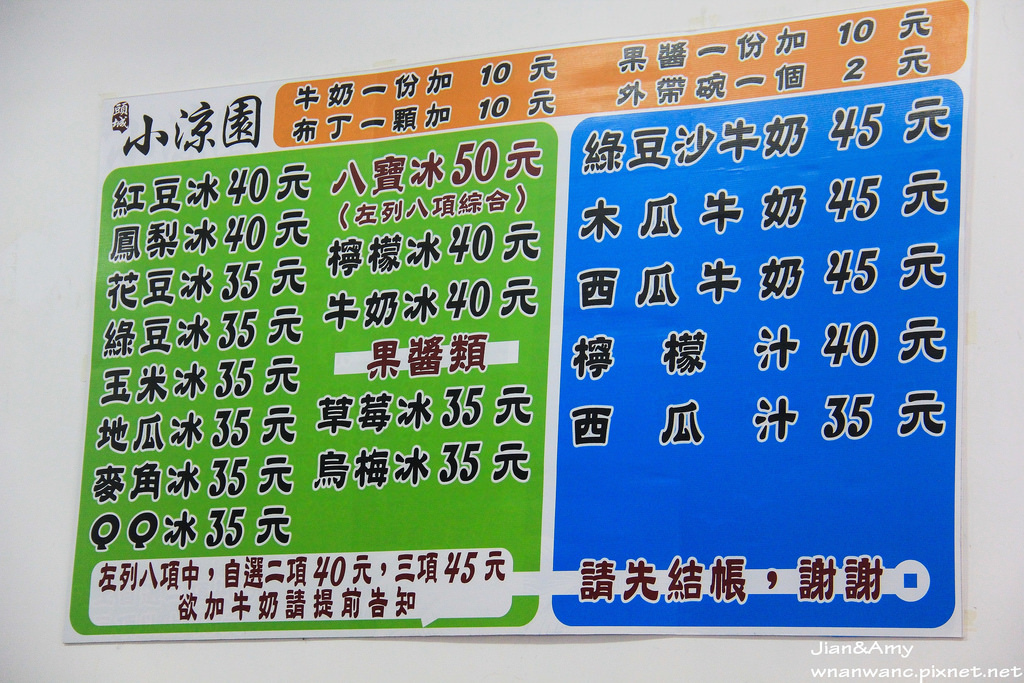 頭城
小涼園
牛奶一份加 10 元
布丁一顆加 10 元
果醬一份加 10 元
外帶碗一個 2 元
紅豆冰 40 元
鳳梨冰 40 元
花豆冰 35 元
綠豆冰 35 元
玉米冰 35 元
地瓜冰 35 元
麥角冰 35 元
QQ冰 35 元
八寶冰 50 元
(左列八項綜合)
檸檬冰 40 元
牛奶冰 40 元
果醬類
草莓冰 35 元
烏梅冰 35 元
左列八項中，自選二項 40 元，三項 45 元
欲加牛奶請提前告知
綠豆沙牛奶 45 元
木瓜牛奶 45 元
西瓜牛奶 45 元
檸檬汁 40 元
西瓜汁 35 元
請先結帳，謝謝
Jian&Amy
wnanwanc.pixnet.net